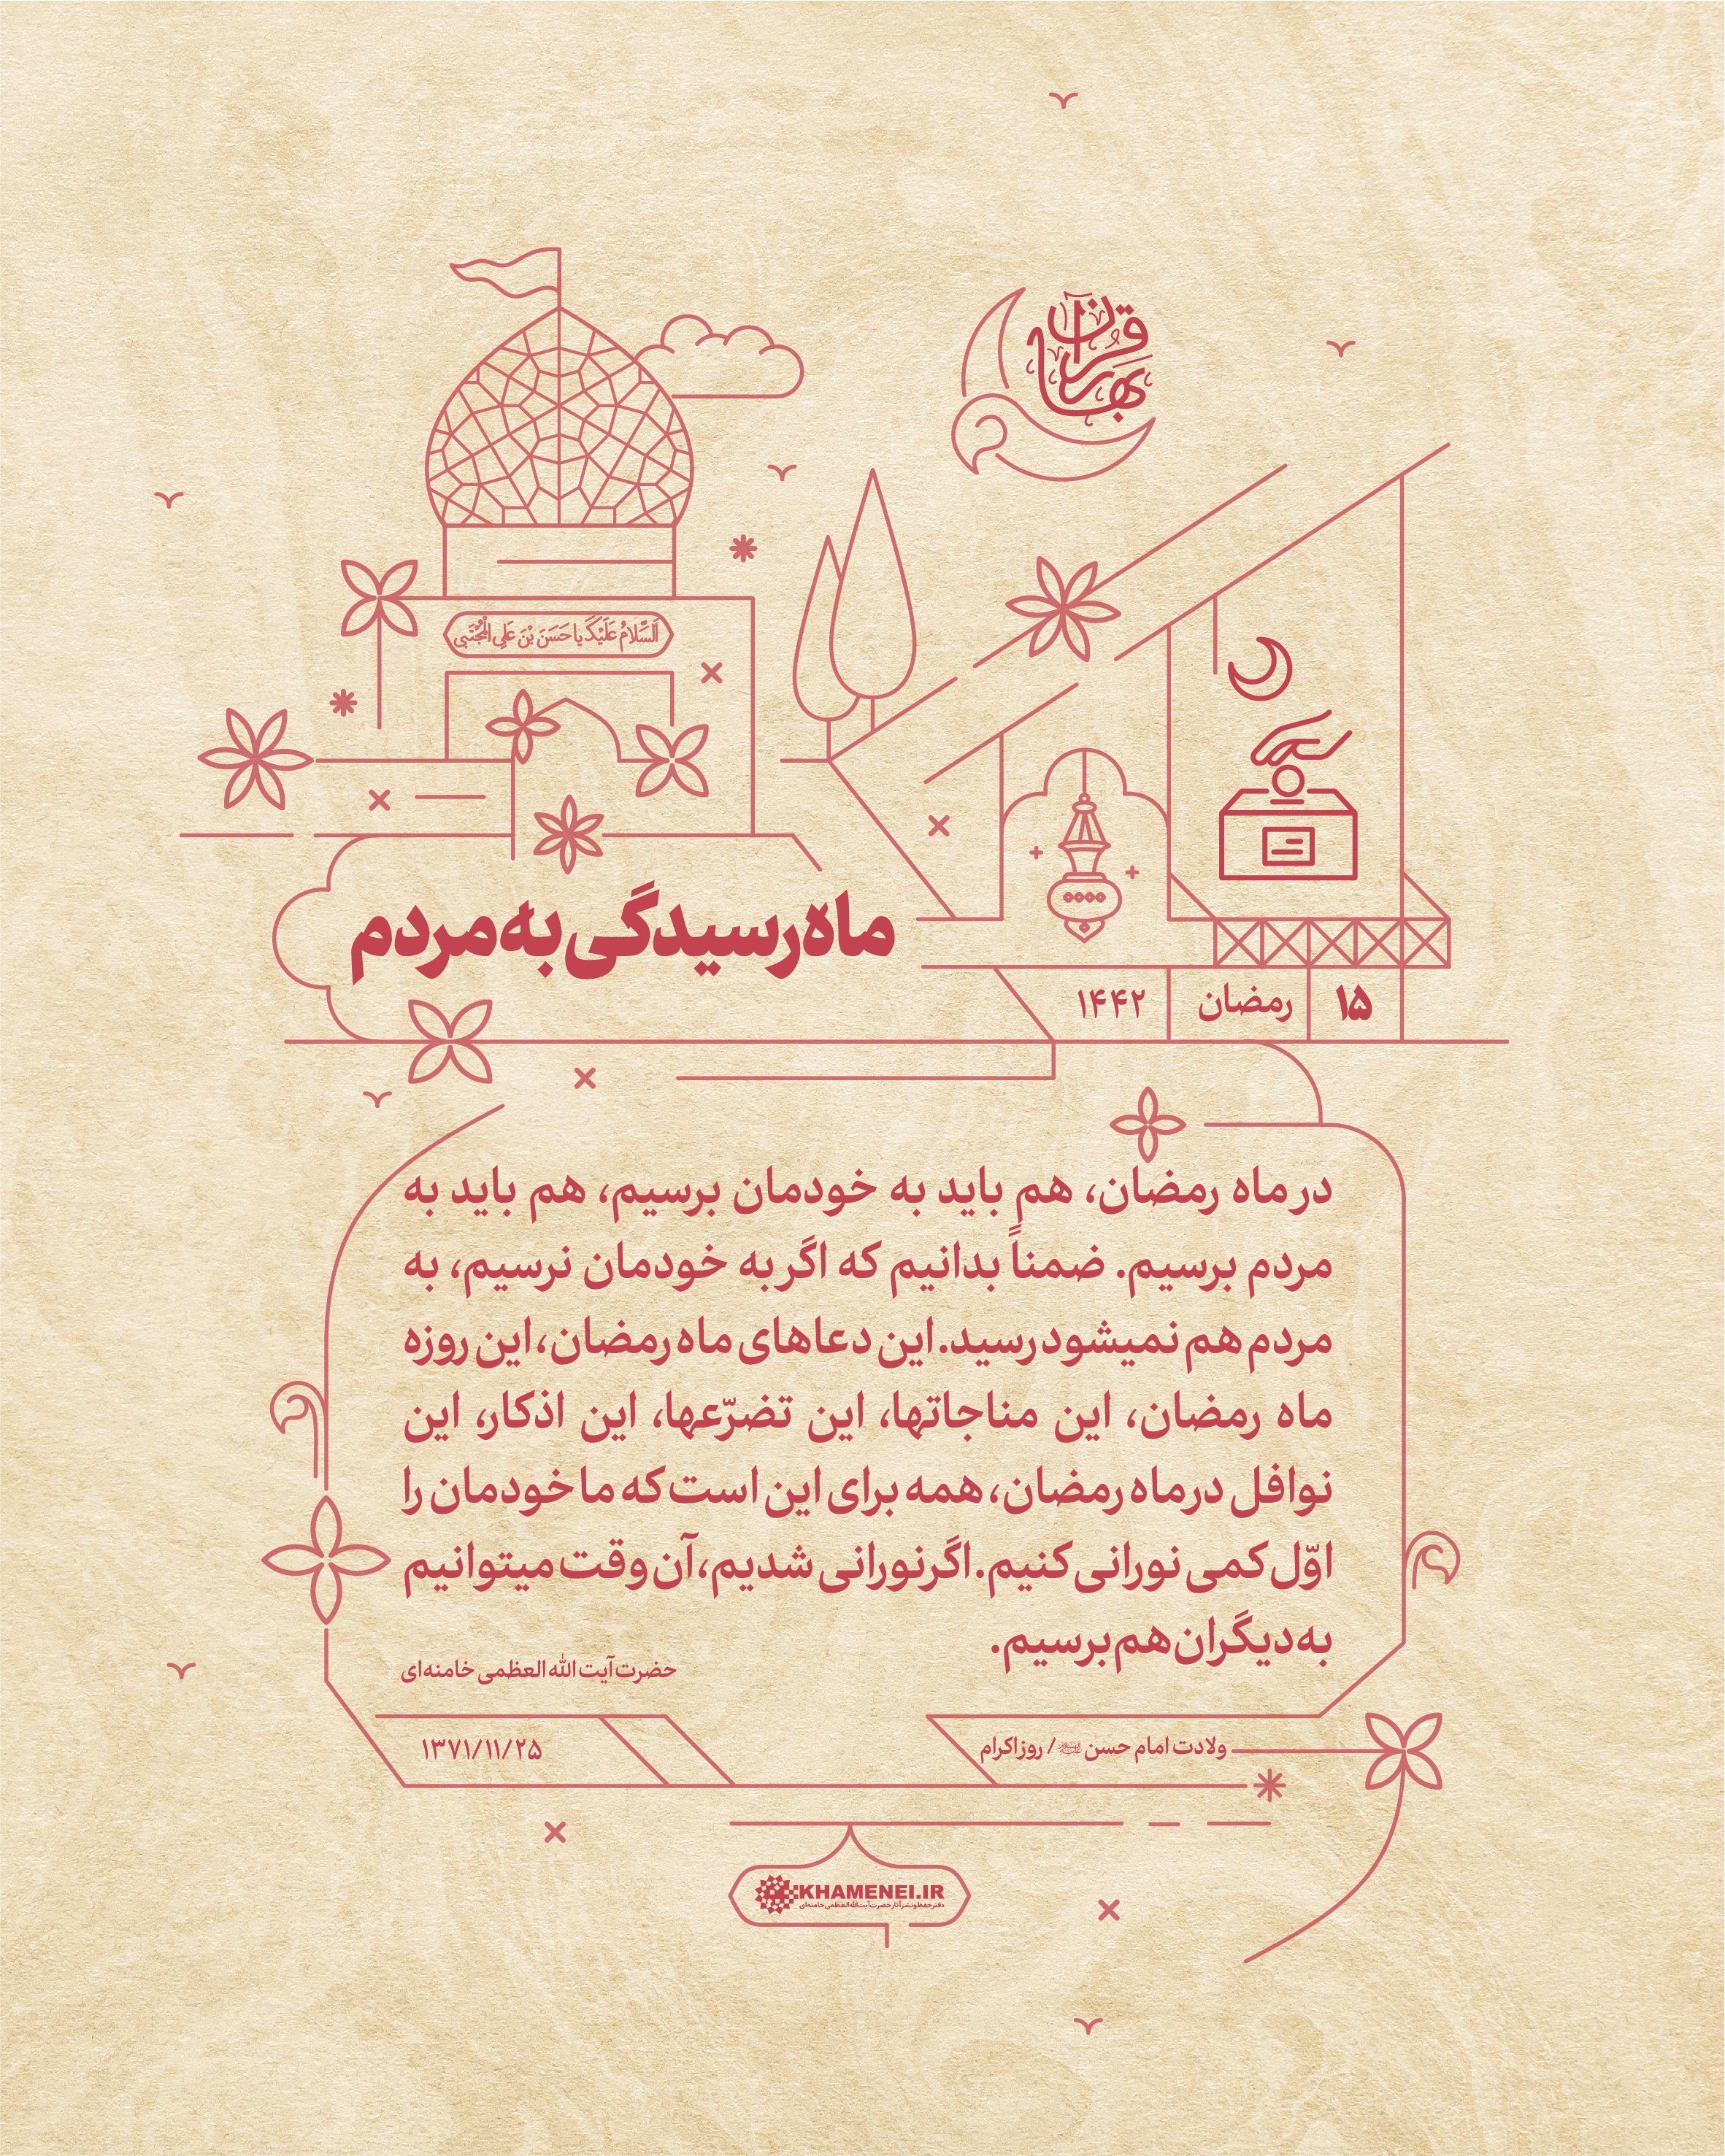 بهار قرآن
اَلسَّلامُ عَلَيْكَ يا حَسَنَ بْنَ عَلِي المُجْتَبى
ماه رسیدگی به مردم
۱۵ رمضان ۱۴۴۲
در ماه رمضان، هم باید به خودمان برسیم، هم باید به
مردم برسیم. ضمناً بدانیم که اگر به خودمان نرسیم، به
مردم هم نمیشود رسید. این دعاهای ماه رمضان، این روزه
ماه رمضان، این مناجاتها، این تضرّعها، این اذکار، این
نوافل در ماه رمضان، همه برای این است که ما خودمان را
اوّل کمی نورانی کنیم. اگر نورانی شدیم، آن وقت میتوانیم
به دیگران هم برسیم.
حضرت آیت الله العظمی خامنه‌ای
ولادت امام حسن / روز اکرام
۱۳۷۱/۱۱/۲۵
KHAMENEI.IR
دفتر حفظ و نشر آثار حضرت آیت‌الله العظمی خامنه‌ای